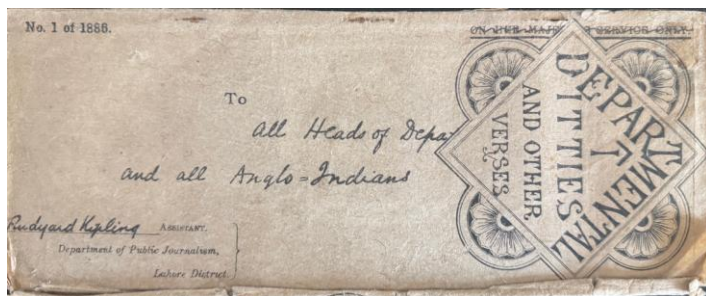 No. 1 of 1886.
ON HER MAJ SERVICE ONLY.
To
All Heads of Depa
and all Anglo=Indians
Rudyard Kipling ASSISTANT.
Department of Public Journalism,
Lahore District.
DEPARTMENTAL
DITTIES
AND OTHER
VERSES